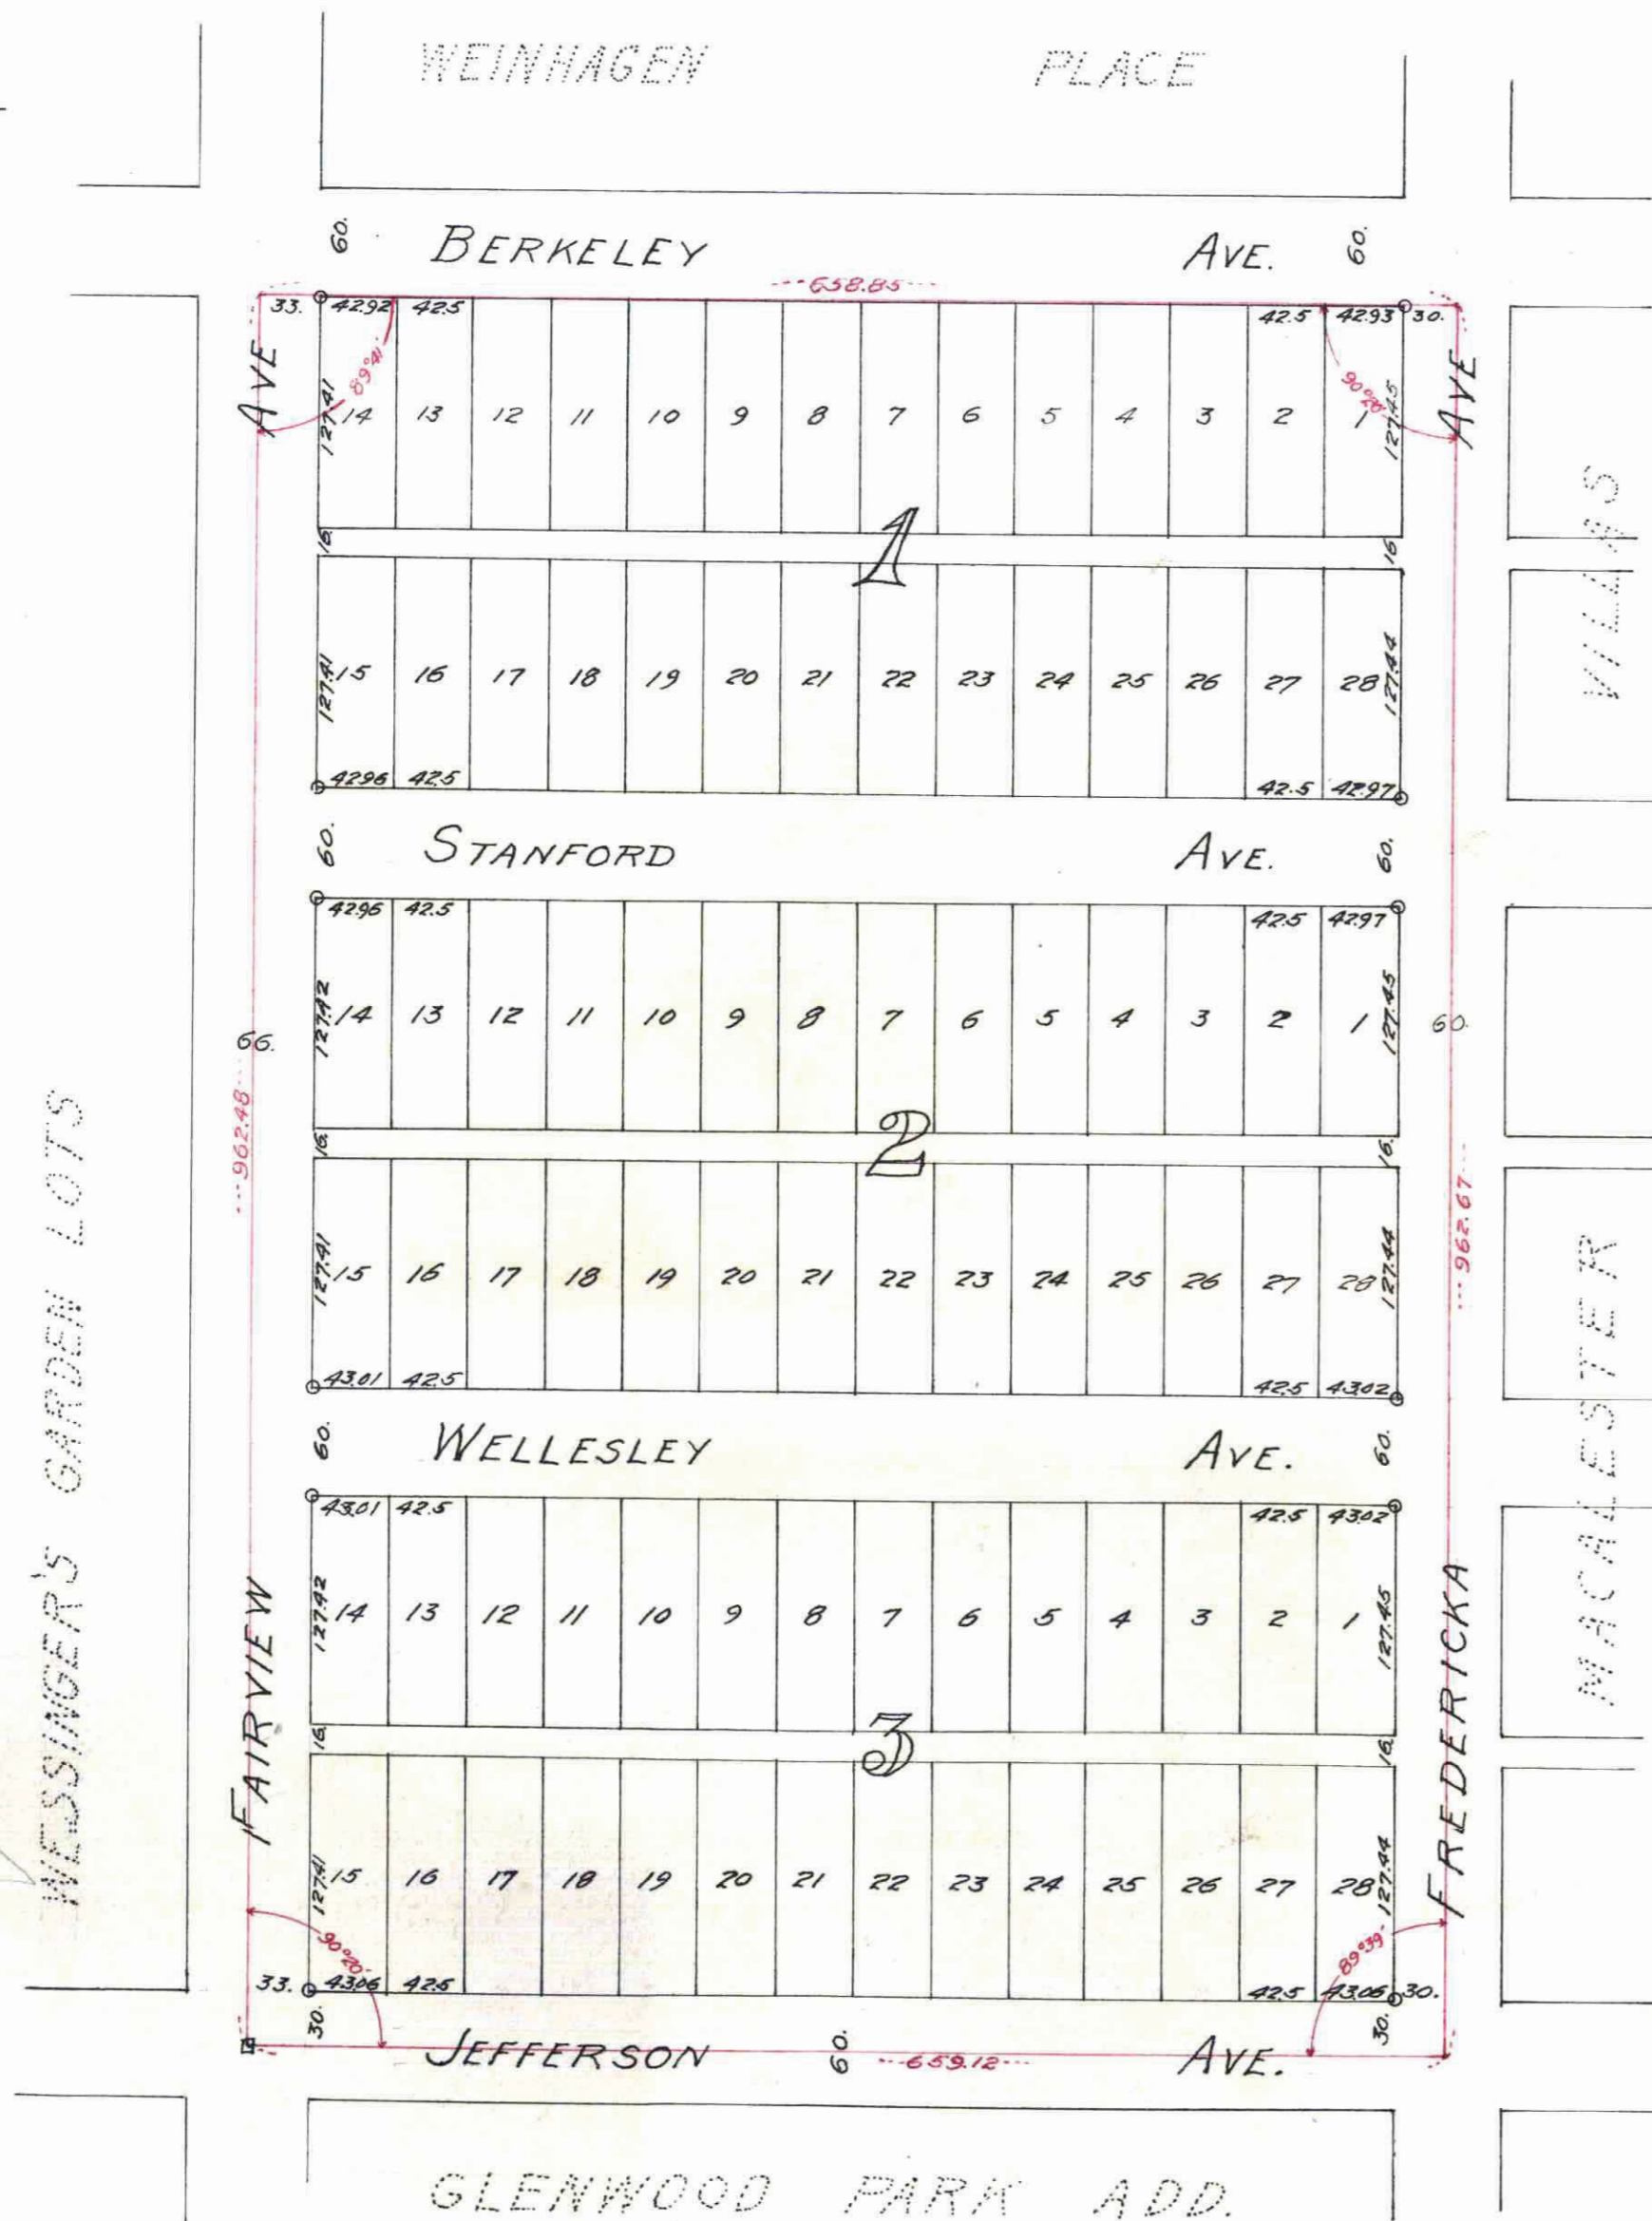 WEINHAGEN PLACE
60. BERKELEY AVE. 60.
---658.85---
33. 42.92 42.5 42.5 42.93 30.
89°41' 90°20'
AVE AVE
127.41 14 13 12 11 10 9 8 7 6 5 4 3 2 1 127.45
16. 1 16
127.41 15 16 17 18 19 20 21 22 23 24 25 26 27 28 127.44
42.96 42.5 42.5 42.97
VILLAMS
60. STANFORD AVE. 60.
42.96 42.5 42.5 42.97
127.42 14 13 12 11 10 9 8 7 6 5 4 3 2 1 127.45
66. 60.
---962.48---
16. 2 16.
---962.67---
127.41 15 16 17 18 19 20 21 22 23 24 25 26 27 28 127.44
43.01 42.5 42.5 43.02
60. WELLESLEY AVE. 60.
43.01 42.5 42.5 43.02
127.42 14 13 12 11 10 9 8 7 6 5 4 3 2 1 127.45
WESSINGER'S GARDEN LOTS
FAIRVIEW
FREDERICKA
MACALESTER
16. 3 16.
127.41 15 16 17 18 19 20 21 22 23 24 25 26 27 28 127.44
90°20' 89°39'
33. 43.06 42.5 42.5 43.06 30.
30. 30.
JEFFERSON 60. ---659.12--- AVE.
GLENWOOD PARK ADD.